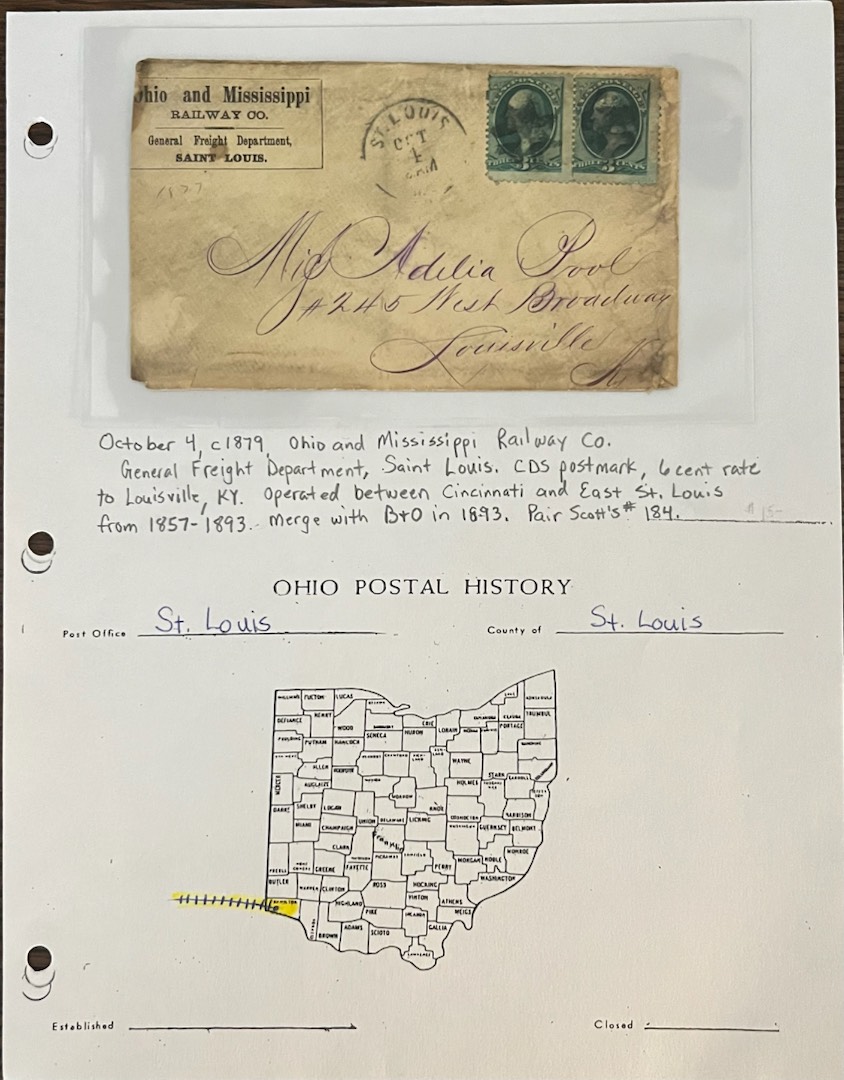 Ohio and Mississippi
RAILWAY CO.
General Freight Department,
SAINT LOUIS.
ST. LOUIS
OCT
4
THREE 3 CENTS
THREE 3 CENTS
1877
Miss Adelia Pool
#245 West Broadway
Louisville
October 4, c1879, Ohio and Mississippi Railway Co.
General Freight Department, Saint Louis. CDS postmark, 6 cent rate
to Louisville, KY. Operated between Cincinnati and East St. Louis
from 1857-1893. Merge with B+O in 1893. Pair Scott's # 184. $15-
OHIO POSTAL HISTORY
Post Office St. Louis County of St. Louis
WILLIAMS FULTON LUCAS
DEFIANCE HENRY WOOD ERIE LORAIN PORTAGE TRUMBUL
PAULDING PUTNAM HANCOCK SENECA HURON
ALLEN WAYNE STARK CARROLL
MERCER AUGLAIZE HARDIN MORROW HOLMES
DARKE SHELBY LOGAN UNION DELAWARE KNOX COSHOCTON HARRISON
MIAMI CHAMPAIGN LICKING GUERNSEY BELMONT
CLARK Franklin MONROE
PREBLE GREENE FAYETTE PICKAWAY PERRY MORGAN NOBLE
BUTLER WARREN CLINTON ROSS HOCKING WASHINGTON
HAMILTON HIGHLAND VINTON ATHENS
PIKE MEIGS
BROWN ADAMS SCIOTO GALLIA
LAWRENCE
Established Closed